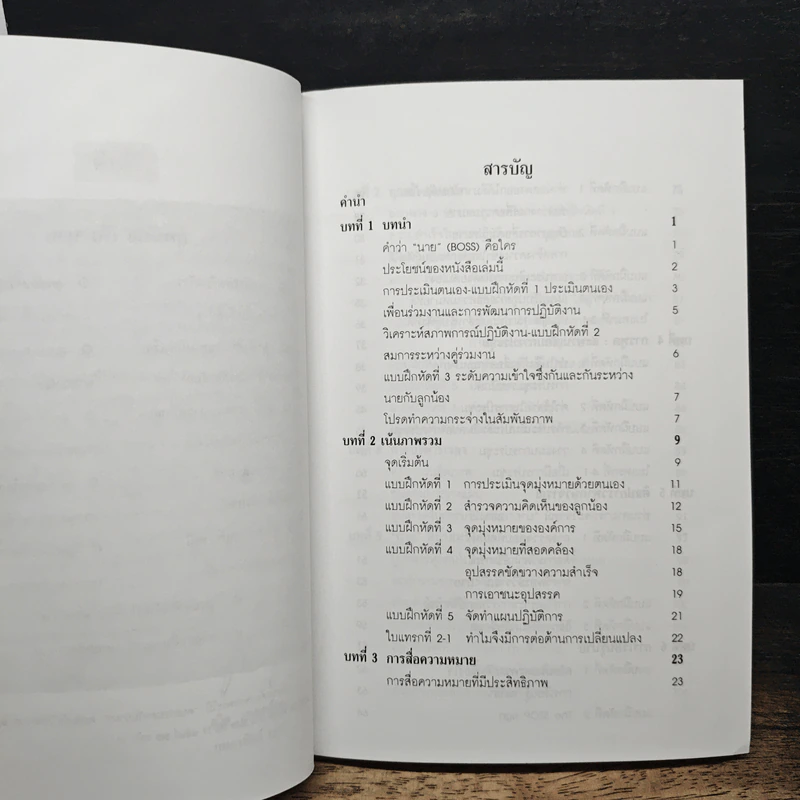 สารบัญ
คำนำ
บทที่ 1 บทนำ 1
คำว่า "นาย" (BOSS) คือใคร 1
ประโยชน์ของหนังสือเล่มนี้ 2
การประเมินตนเอง-แบบฝึกหัดที่ 1 ประเมินตนเอง 3
เพื่อนร่วมงานและการพัฒนาการปฏิบัติงาน 5
วิเคราะห์สภาพการณ์ปฏิบัติงาน-แบบฝึกหัดที่ 2
สมการระหว่างคู่ร่วมงาน 6
แบบฝึกหัดที่ 3 ระดับความเข้าใจซึ่งกันและกันระหว่าง
นายกับลูกน้อง 7
โปรดทำความกระจ่างในสัมพันธภาพ 7
บทที่ 2 เน้นภาพรวม 9
จุดเริ่มต้น 9
แบบฝึกหัดที่ 1 การประเมินจุดมุ่งหมายด้วยตนเอง 11
แบบฝึกหัดที่ 2 สำรวจความคิดเห็นของลูกน้อง 12
แบบฝึกหัดที่ 3 จุดมุ่งหมายขององค์การ 15
แบบฝึกหัดที่ 4 จุดมุ่งหมายที่สอดคล้อง 18
อุปสรรคขัดขวางความสำเร็จ 18
การเอาชนะอุปสรรค 19
แบบฝึกหัดที่ 5 จัดทำแผนปฏิบัติการ 21
ใบแทรกที่ 2-1 ทำไมจึงมีการต่อต้านการเปลี่ยนแปลง 22
บทที่ 3 การสื่อความหมาย 23
การสื่อความหมายที่มีประสิทธิภาพ 23